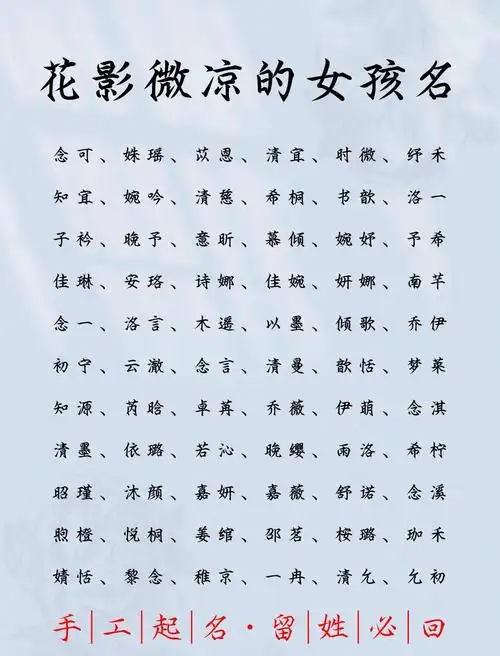 花影微凉的女孩名
念可、姝瑶、苡恩、清宜、时微、纾禾
知宜、婉吟、清慈、希桐、书歆、洛一
子衿、晚予、意昕、慕倾、婉妤、予希
佳琳、安珞、诗娜、佳婉、妍娜、南芊
念一、洛言、木遥、以墨、倾歌、乔伊
初宁、云澈、念言、清曼、歆恬、梦莱
知源、芮晗、卓苒、乔薇、伊萌、念淇
清墨、依璐、若沁、晚缨、雨洛、希柠
昭瑾、沐颜、嘉妍、嘉薇、舒诺、念溪
煦橙、悦桐、姜绾、邵茗、桉璐、珈禾
婧恬、黎念、稚京、一冉、清允、允初
手|工|起|名·留|姓|必|回